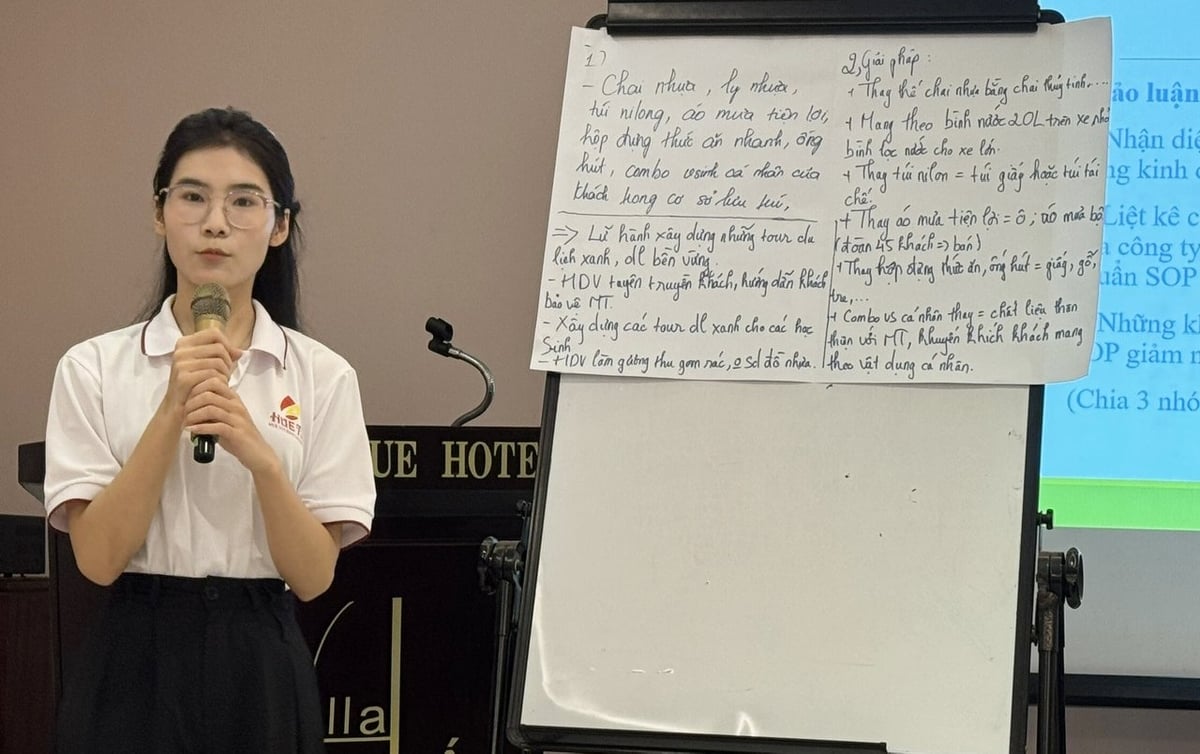 1)
- Chai nhựa, ly nhựa,
túi nilong, áo mưa tiện lợi,
hộp đựng thức ăn nhanh, ống
hút, combo vsinh cá nhân của
khách trong cơ sở lưu trú,
=> Lữ hành xây dựng những tour du
lịch xanh, dl bền vững.
- HDV tuyên truyền khách, hướng dẫn khách
bảo vệ MT.
- Xây dựng các tour dl xanh cho các học
sinh
- HDV làm gương thu gom rác, 0 sd đồ nhựa.
2, Giải pháp:
+ Thay thế chai nhựa bằng chai thủy tinh....
+ Mang theo bình nước 20L trên xe nhỏ
bình lọc nước cho xe lớn.
+ Thay túi nilon = túi giấy hoặc túi tái
chế.
+ Thay áo mưa tiện lợi = ô; áo mưa bộ
(đoàn 45 khách => bán)
+ Thay hộp đựng thức ăn, ống hút = giấy, gỗ,
tre,...
+ Combo vs cá nhân thay = chất liệu thân
thiện với MT, khuyến khích khách mang
theo vật dụng cá nhân.
ảo luận
Nhận diệ
ng kinh
Liệt kê c
công ty
uẩn SOP
Những k
OP giảm
(Chia 3 nhó
HUE
UE HOTE
lla